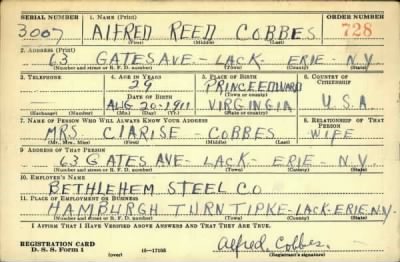 SERIAL NUMBER 1. NAME (Print) ORDER NUMBER
3007 AlFRED REED COBBES 728
(First) (Middle) (Last)
2. ADDRESS (Print)
63 GATES AVE - LACK- ERIE - N.Y.
(Number and street or R. F. D. number) (Town) (County) (State)
3. TELEPHONE 4. AGE IN YEARS 5. PLACE OF BIRTH 6. COUNTRY OF CITIZENSHIP
29 PRINCE EDWARD
DATE OF BIRTH (Town or county)
AUG 20-1911 VIRGINGIA U.S.A
(Exchange) (Number) (Mo.) (Day) (Yr.) (State or country)
7. NAME OF PERSON WHO WILL ALWAYS KNOW YOUR ADDRESS 8. RELATIONSHIP OF THAT PERSON
MRS. ClARISE - COBBES WIFE
(Mr., Mrs., Miss) (First) (Middle) (Last)
9. ADDRESS OF THAT PERSON
63 GATES AVE - LACK - ERIE - N.Y.
(Number and street or R. F. D. number) (Town) (County) (State)
10. EMPLOYER'S NAME
BETHLEHEM STEEL CO
11. PLACE OF EMPLOYMENT OR BUSINESS
HAMBURGH TURNTIPKE-LACK-ERIE.N.Y.
(Number and street or R. F. D. number) (Town) (County) (State)
I AFFIRM THAT I HAVE VERIFIED ABOVE ANSWERS AND THAT THEY ARE TRUE.
REGISTRATION CARD
D. S. S. Form 1 (over) Alfred Cobbes.
(Registrant's signature)